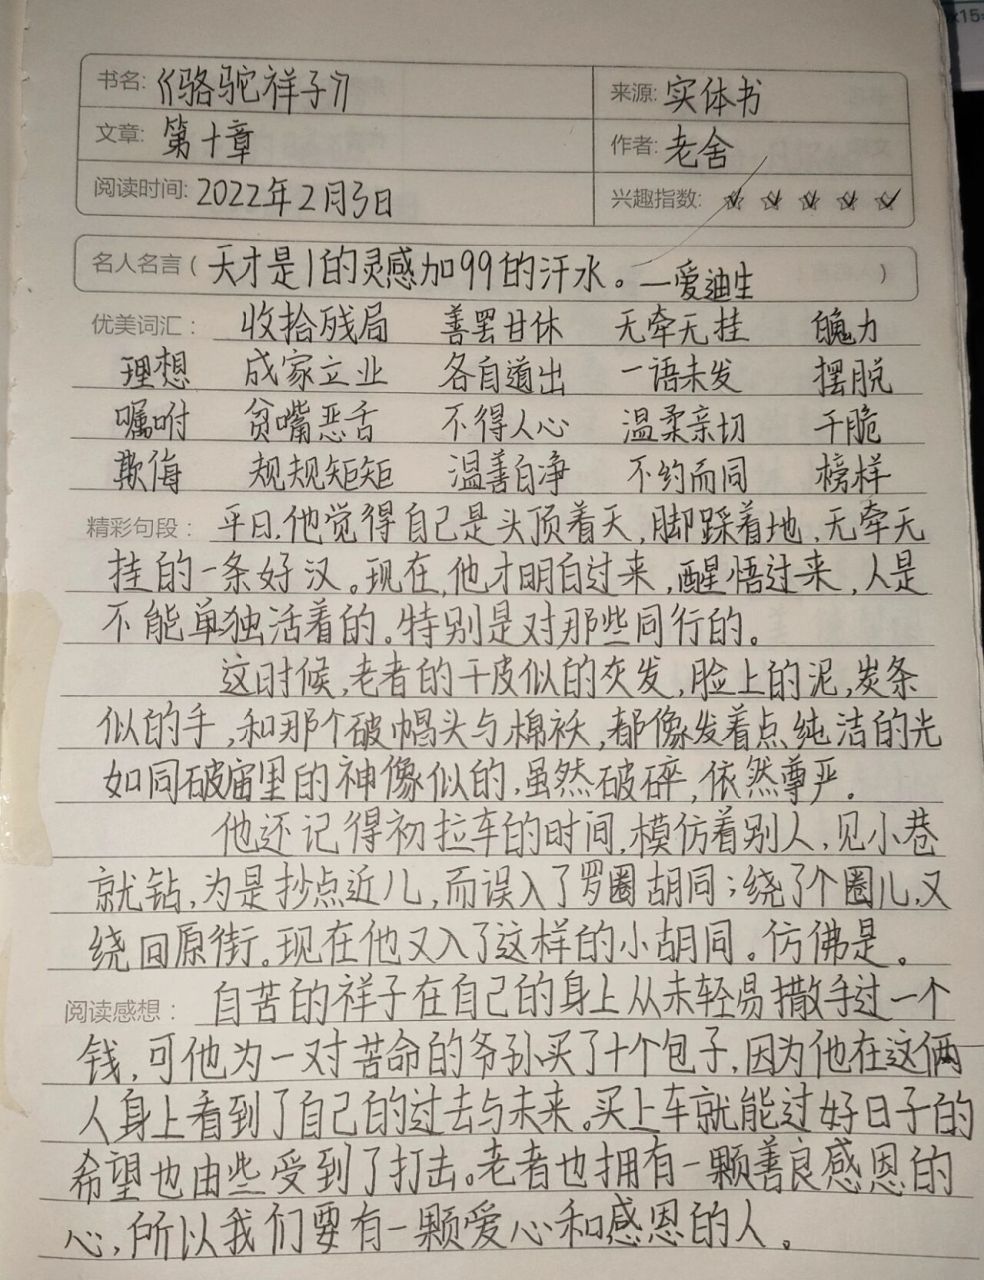 书名:《骆驼祥子》 来源:实体书
文章:第十章 作者:老舍
阅读时间:2022年2月3日 兴趣指数:☆☆☆☆☆
名人名言(天才是1的灵感加99的汗水。—爱迪生)
优美词汇: 收拾残局 善罢甘休 无牵无挂 魄力
理想 成家立业 各自道出 一语未发 摆脱
嘱咐 贫嘴恶舌 不得人心 温柔亲切 干脆
欺侮 规规矩矩 温善白净 不约而同 榜样
精彩句段: 平日,他觉得自己是头顶着天,脚踩着地,无牵无
挂的一条好汉。现在,他才明白过来,醒悟过来,人是
不能单独活着的。特别是对那些同行的。
这时候,老者的干皮似的灰发,脸上的泥,炭条
似的手,和那个破帽头与棉袄,都像发着点纯洁的光
如同破庙里的神像似的,虽然破碎,依然尊严。
他还记得初拉车的时间,模仿着别人,见小巷
就钻,为是抄点近儿,而误入了罗圈胡同;绕了个圈儿,又
绕回原街。现在他又入了这样的小胡同。仿佛是。
阅读感想: 自苦的祥子在自己的身上从未轻易撒手过一个
钱,可他为一对苦命的爷孙买了十个包子,因为他在这俩
人身上看到了自己的过去与未来。买上车就能过好日子的
希望也由些受到了打击。老者也拥有一颗善良感恩的
心,所以我们要有一颗爱心和感恩的人。